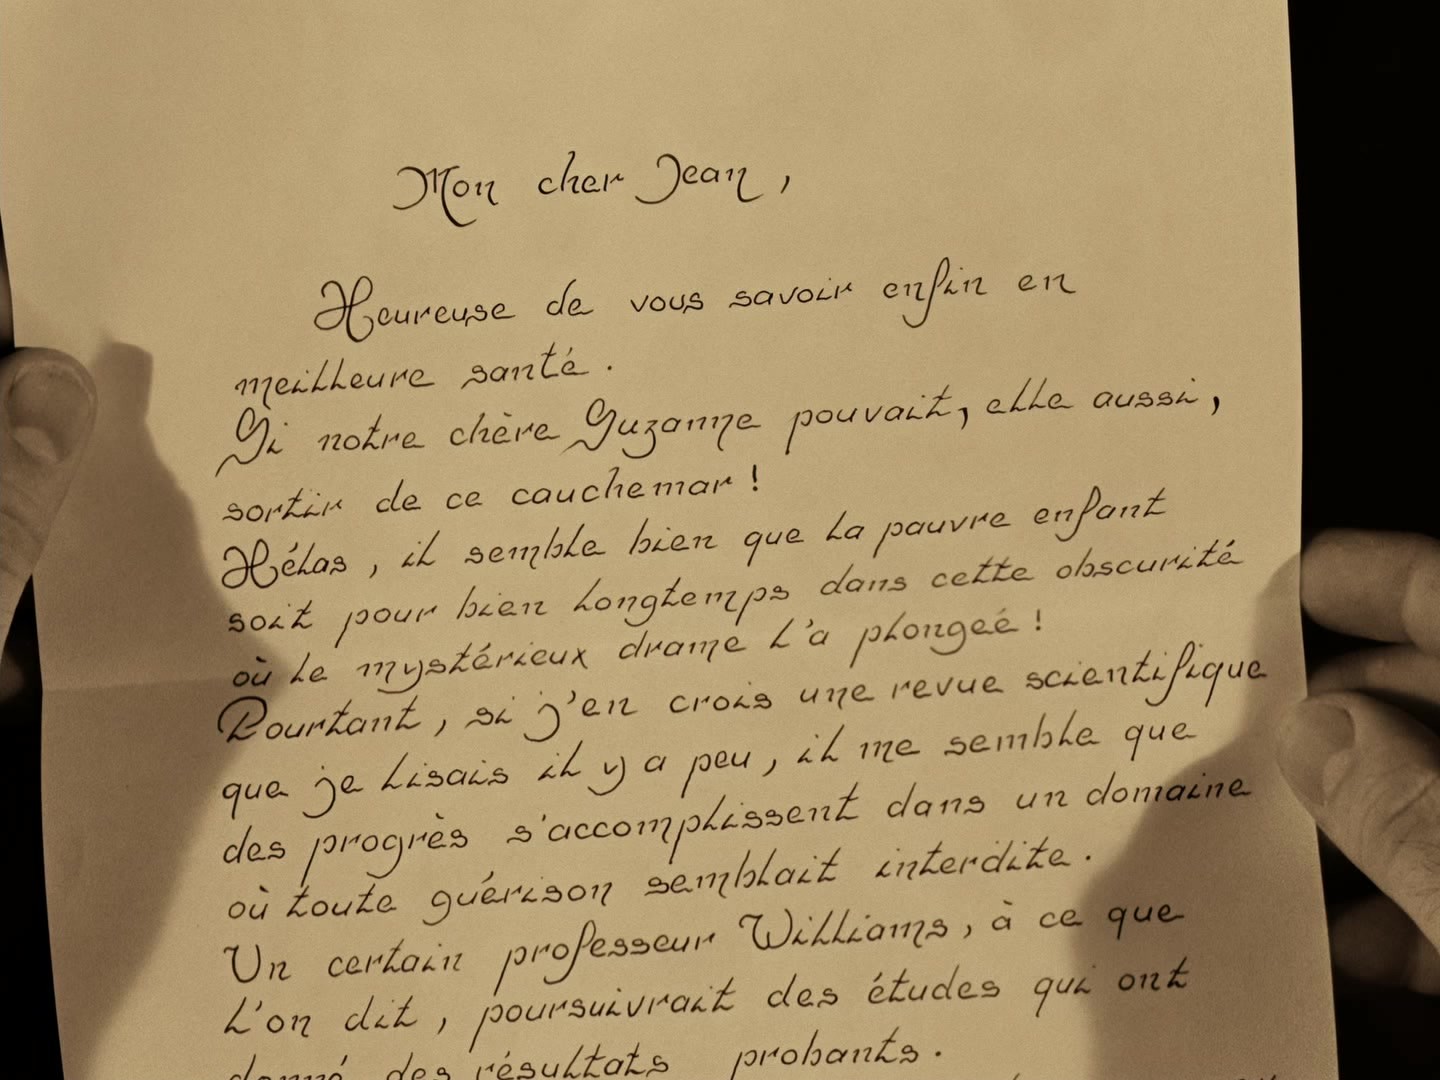 Mon cher Jean,
Heureuse de vous savoir enfin en
meilleure santé.
Si notre chère Suzanne pouvait, elle aussi,
sortir de ce cauchemar !
Hélas, il semble bien que la pauvre enfant
soit pour bien longtemps dans cette obscurité
où le mystérieux drame l'a plongeé !
Pourtant, si j'en crois une revue scientifique
que je lisais il y a peu, il me semble que
des progrès s'accomplissent dans un domaine
où toute guérison semblait interdite.
Un certain professeur Williams, à ce que
l'on dit, poursuivrait des études qui ont
donné des résultats probants.